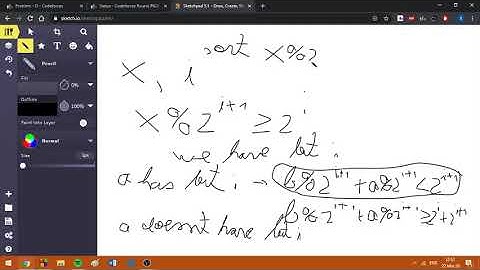 Problem - D - Codeforces
Status - Codeforces Round
Sketchpad 5.1 - Draw, Create, Sh
sketch.io/sketchpad/
Pencil
Fill
0%
Outline
100%
Point into Layer
Normal
Size
sort x%2
x, i
x%2^{i+1} ≥ 2^i
we have bit i
a has bit i → b%2^{i+1} + a%2^{i+1} < 2^{i+1}
a doesn't have bit i
b%2^{i+1} + a%2^{i+1} ≥ 2^i + 2^{i+1}
ENG